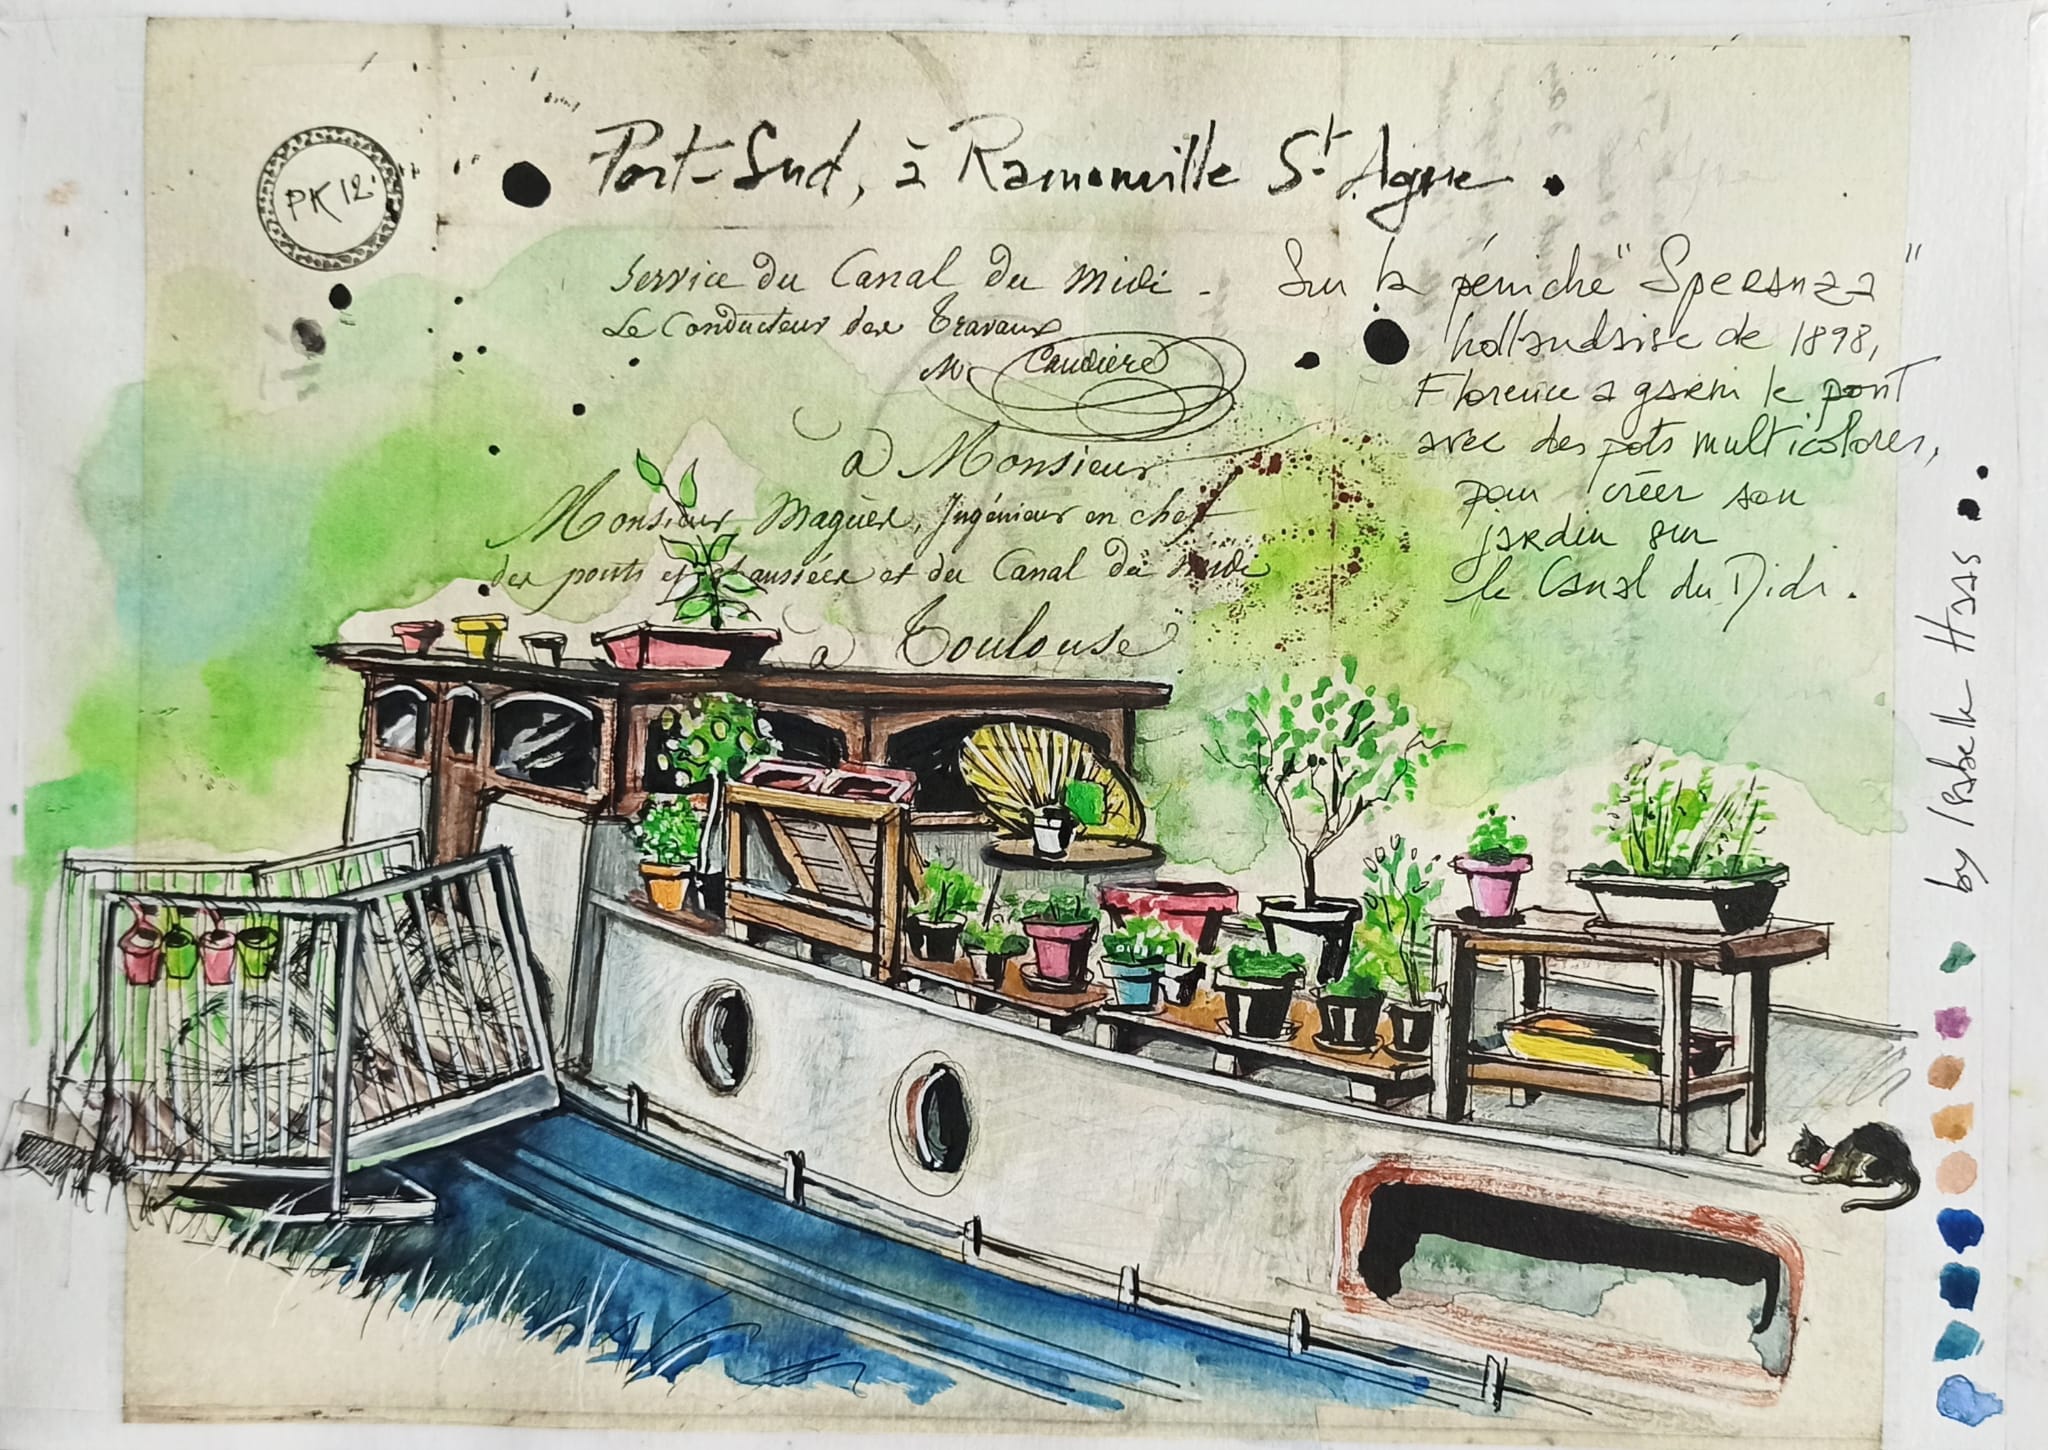 PK 12
Port-Sud, à Ramonville St. Agne.
Service du Canal du Midi -
Le Conducteur des Travaux
M. Caudière
à Monsieur
Monsieur Maguès, Ingénieur en chef
des ponts et chaussées et du Canal du Midi
à Toulouse
Sur la péniche "Speranza"
hollandaise de 1898,
Florence a garni le pont
avec des pots multicolores,
pour créer son
jardin sur
le Canal du Midi.
by Isabelle Haas